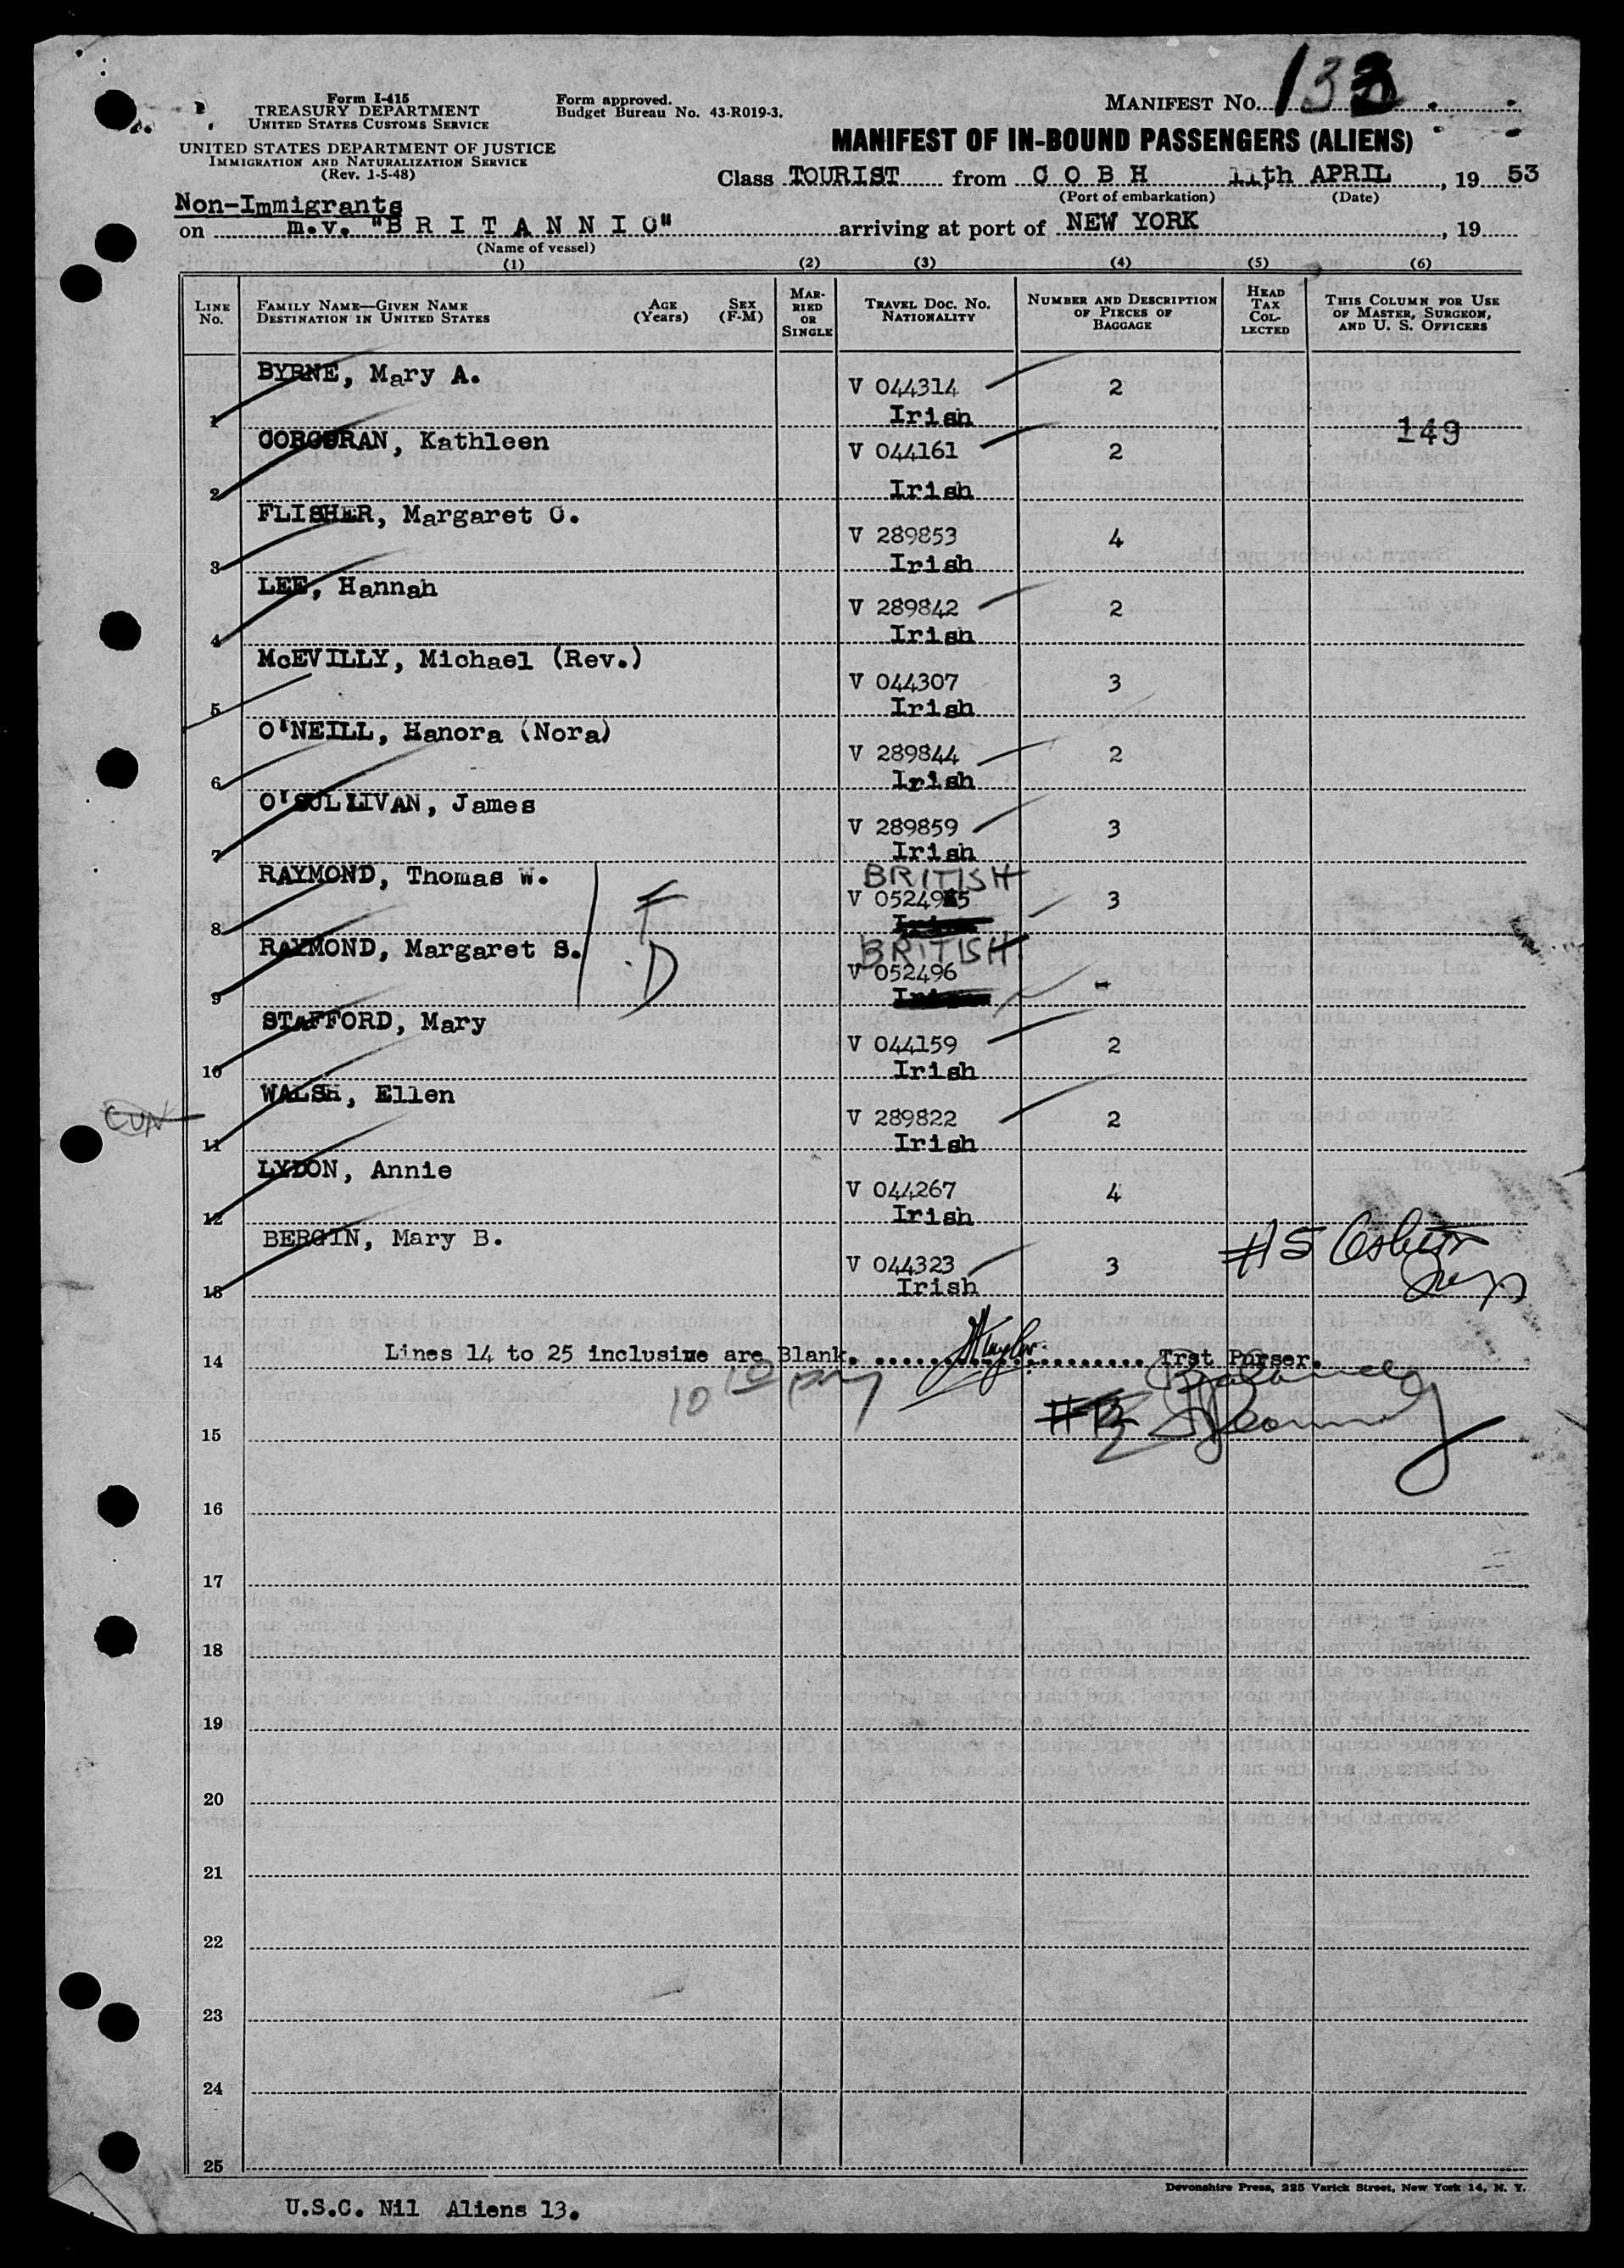 Form I-415
TREASURY DEPARTMENT
UNITED STATES CUSTOMS SERVICE
UNITED STATES DEPARTMENT OF JUSTICE
IMMIGRATION AND NATURALIZATION SERVICE
(Rev. 1-5-48)
Form approved.
Budget Bureau No. 43-R019-3.
MANIFEST NO. 133
MANIFEST OF IN-BOUND PASSENGERS (ALIENS)
Class TOURIST from C O B H 11th APRIL, 19 53
(Port of embarkation) (Date)
Non-Immigrants
on m.v. "B R I T A N N I C" arriving at port of NEW YORK, 19
(Name of vessel)
(1) (2) (3) (4) (5) (6)
LINE No. FAMILY NAME—GIVEN NAME DESTINATION IN UNITED STATES AGE (Years) SEX (F-M) MARRIED OR SINGLE TRAVEL DOC. NO. NATIONALITY NUMBER AND DESCRIPTION OF PIECES OF BAGGAGE HEAD TAX COLLECTED THIS COLUMN FOR USE OF MASTER, SURGEON, AND U. S. OFFICERS
1 BYRNE, Mary A. V 044314 Irish 2
149
2 CORCORAN, Kathleen V 044161 Irish 2
3 FLISHER, Margaret C. V 289853 Irish 4
4 LEE, Hannah V 289842 Irish 2
5 McEVILLY, Michael (Rev.) V 044307 Irish 3
6 O'NEILL, Hanora (Nora) V 289844 Irish 2
7 O'SULLIVAN, James V 289859 Irish 3
8 RAYMOND, Thomas W. F BRITISH V 052495 Irish 3
9 RAYMOND, Margaret S. D BRITISH V 052496 Irish -
10 STAFFORD, Mary V 044159 Irish 2
CUN
11 WALSH, Ellen V 289822 Irish 2
12 LYDON, Annie V 044267 Irish 4
13 BERGIN, Mary B. V 044323 Irish 3
#15
14 Lines 14 to 25 inclusive are Blank. Trst Purser.
10 10 pm
15
16
17
18
19
20
21
22
23
24
25
Devonshire Press, 225 Varick Street, New York 14, N. Y.
U.S.C. Nil Aliens 13.